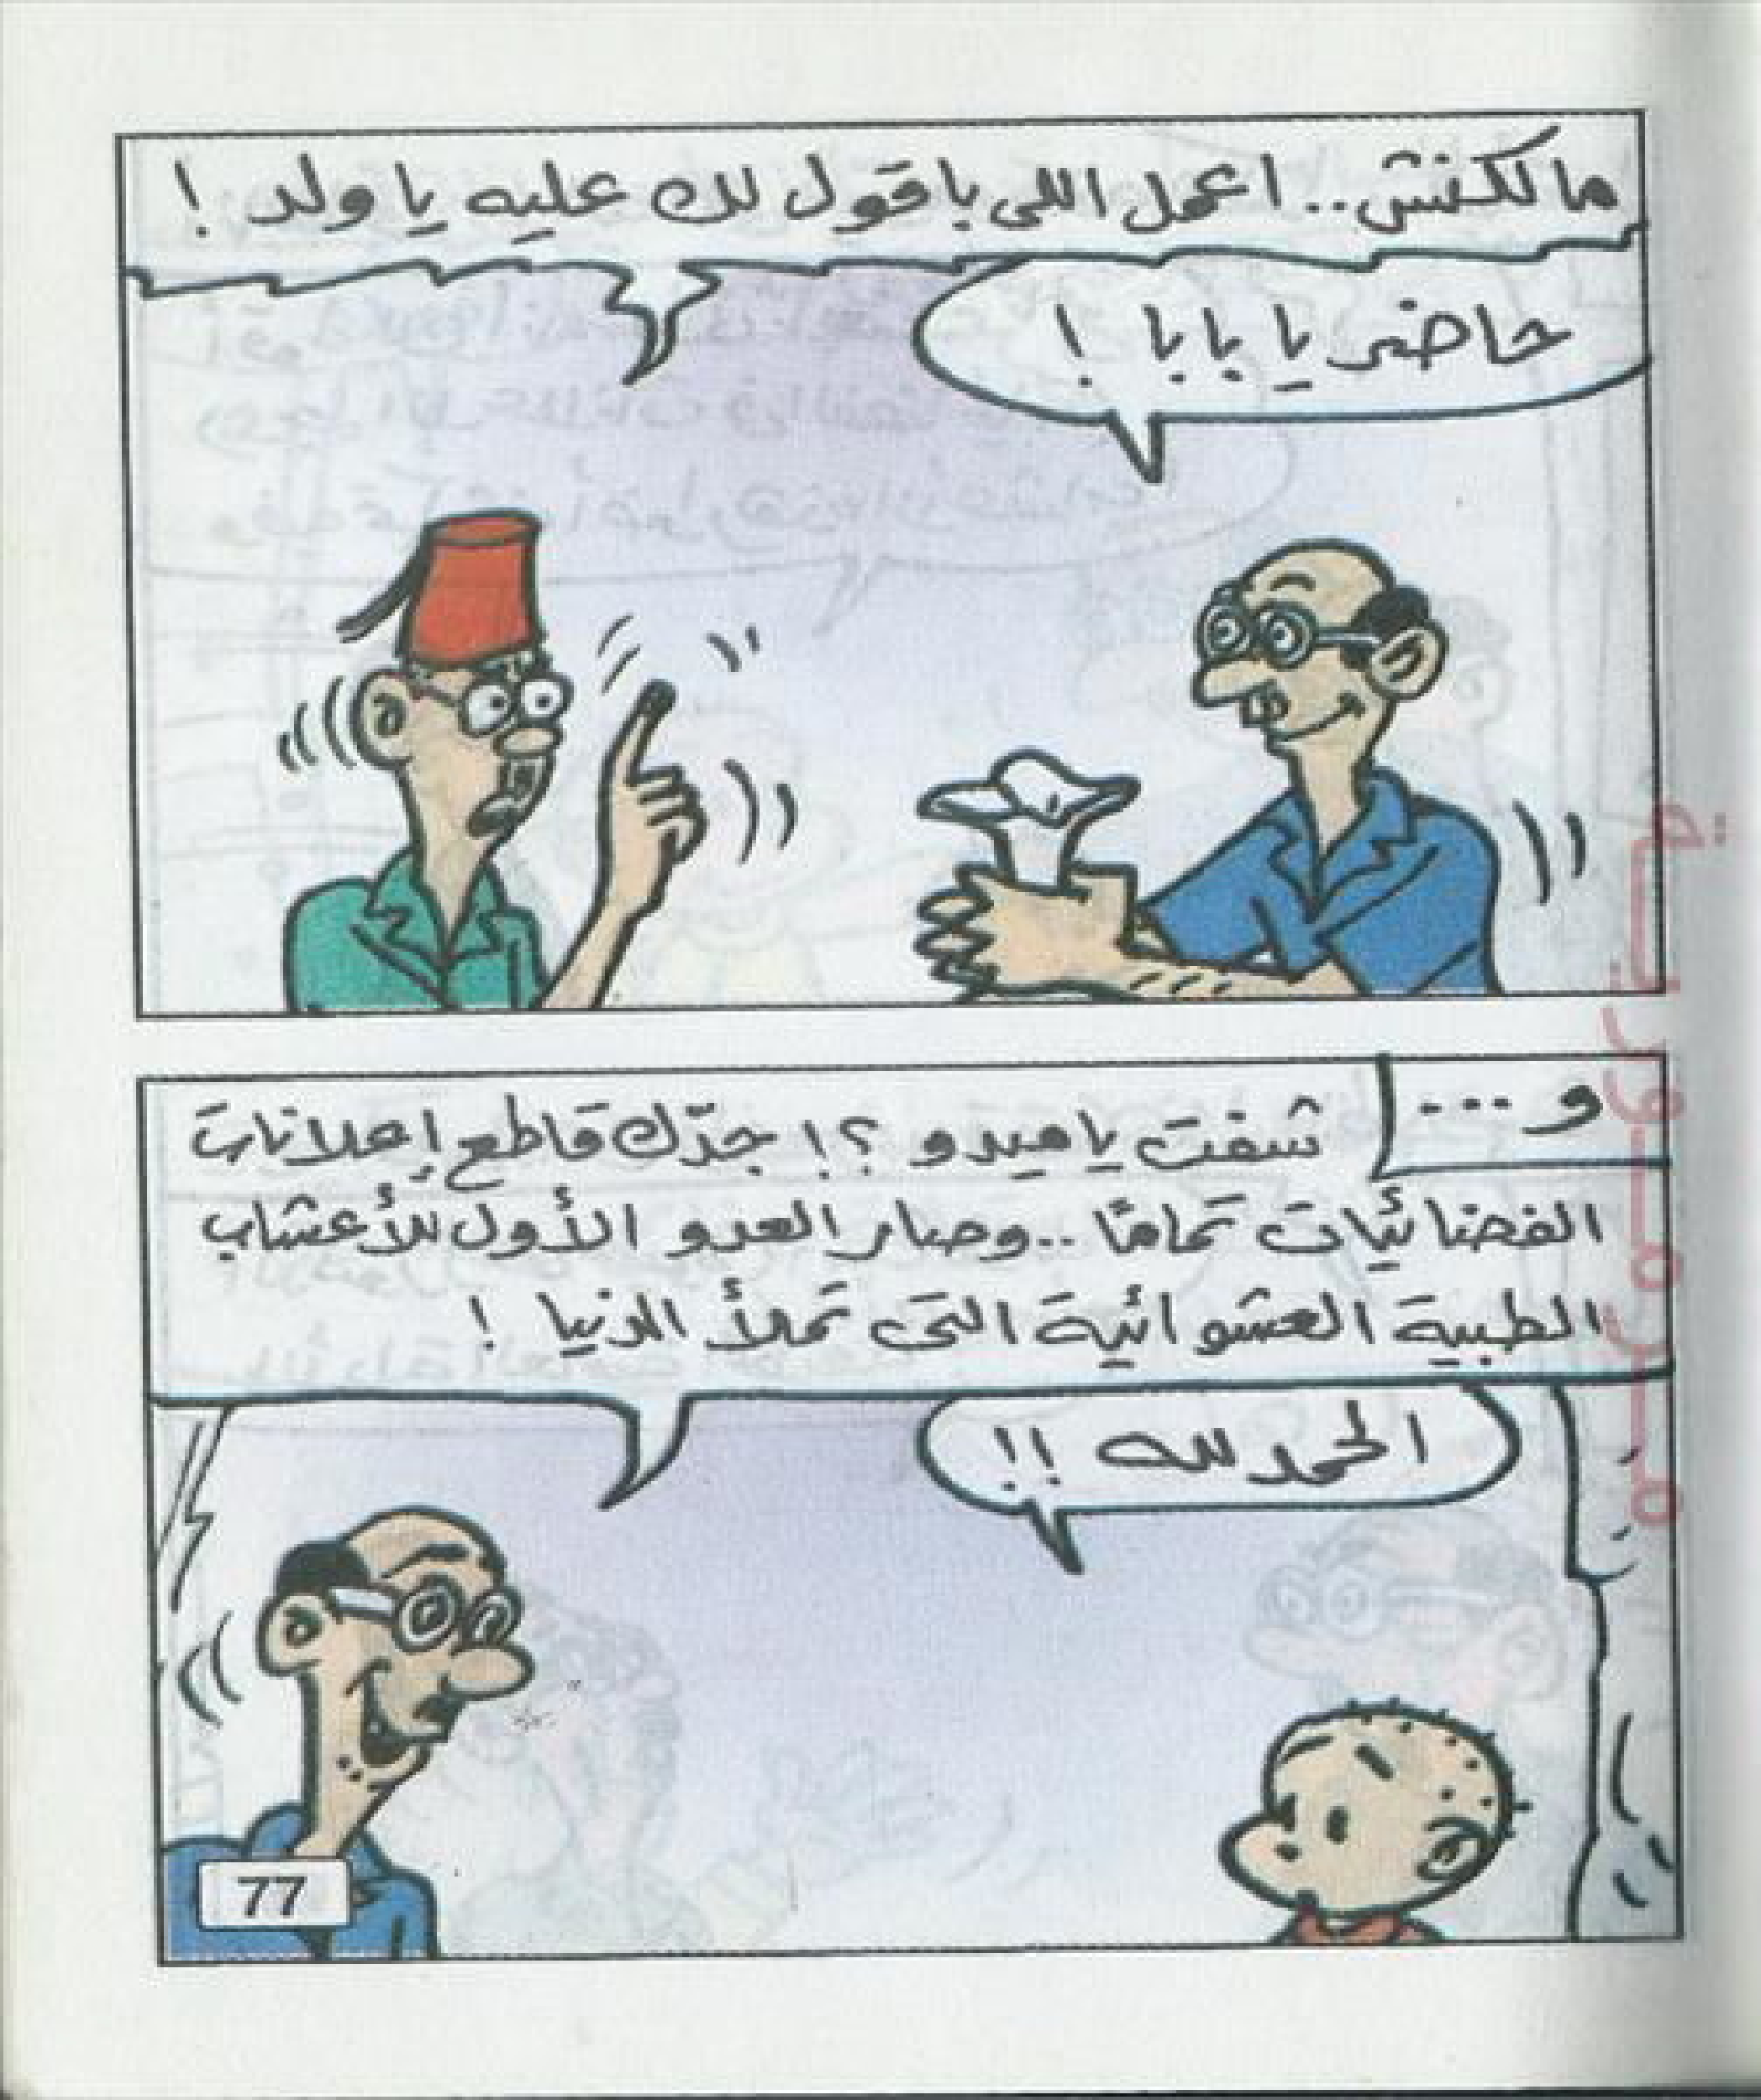 مالكش.. اعمل اللى باقول لك عليه يا ولد !
حاضر يا بابا !
و ...
شفت يا ميدو ؟! جدّك قاطع إعلانات
الفضائيات تمامًا .. وصار العدو الأول للأعشاب
الطبية العشوائية التى تملأ الدنيا !
الحمد لله !!
77